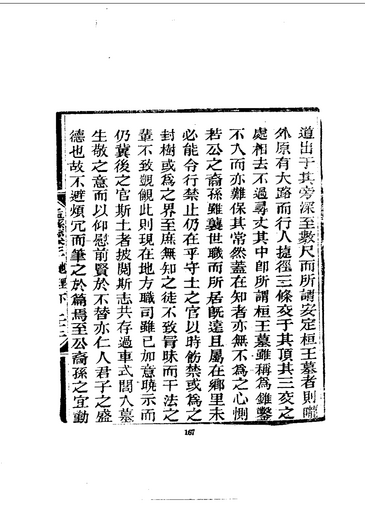 道出于其旁深至數尺而所謂安定桓王墓者則隴
外原有大路而行人捷徑三條交于其頂其三交之
處相去不過尋丈其中卽所謂桓王墓雖稱爲錐鑿
不入而亦難保其常然蓋在知者亦無不爲之心惻
若公之裔孫雖襲世職而所居旣遠且屬在鄉里未
必能令行禁止仍在乎守土之官以時飭禁或爲之
封樹或爲之界至庶無知之徒不致冒昧而干法之
輩不致覬覦此則現在地方職司雖已加意曉示而
仍冀後之官斯土者披閲斯志共存過車式閭入墓
生敬之意而以仰慰前賢於不替亦仁人君子之盛
德也故不避煩冗而筆之於篇焉至公裔孫之宜勤
167